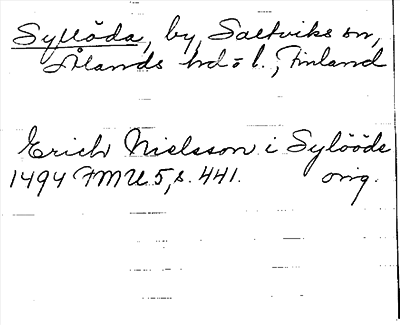 Syllöda, by, Saltviks sn,
Ålands hd o l., Finland
Erich Nielsson i Sylööde
1494 FMU 5, s. 441. orig.